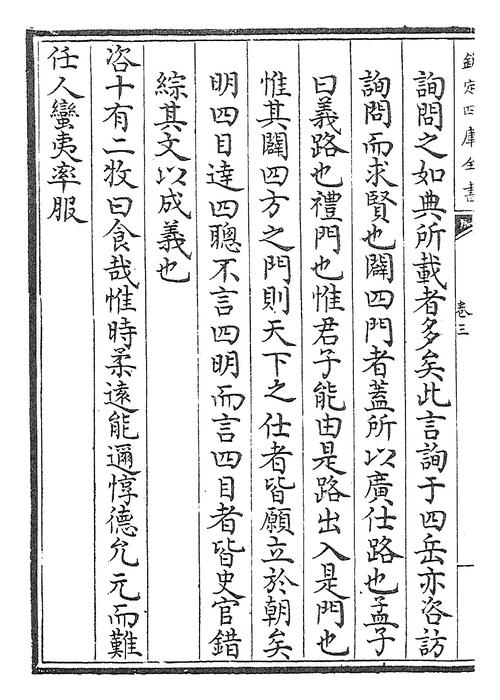 欽定四庫全書
卷三
詢問之如典所載者多矣此言詢于四岳亦咨訪
詢問而求賢也闢四門者蓋所以廣仕路也孟子
曰義路也禮門也惟君子能由是路出入是門也
惟其闢四方之門則天下之仕者皆願立於朝矣
明四目達四聰不言四明而言四目者皆史官錯
綜其文以成義也
咨十有二牧曰食哉惟時柔遠能邇惇德允元而難
任人蠻夷率服